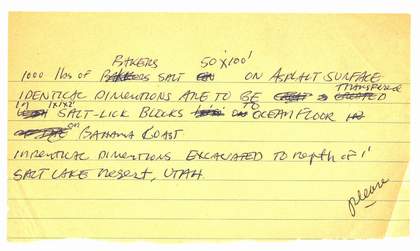 BAKERS 50'x100'
1000 lbs of SALT ON ASPALT SURFACE
TRANSFERED
IDENTICAL DIMENTIONS ARE TO BE
IN 1x1x2' SALT-LICK BLOCKS TO OCEAN FLOOR
ON BAHAMA COAST
IDENTICAL DIMENTIONS EXCAVATED TO DEPTH OF 1'
SALT LAKE DESERT, UTAH
please